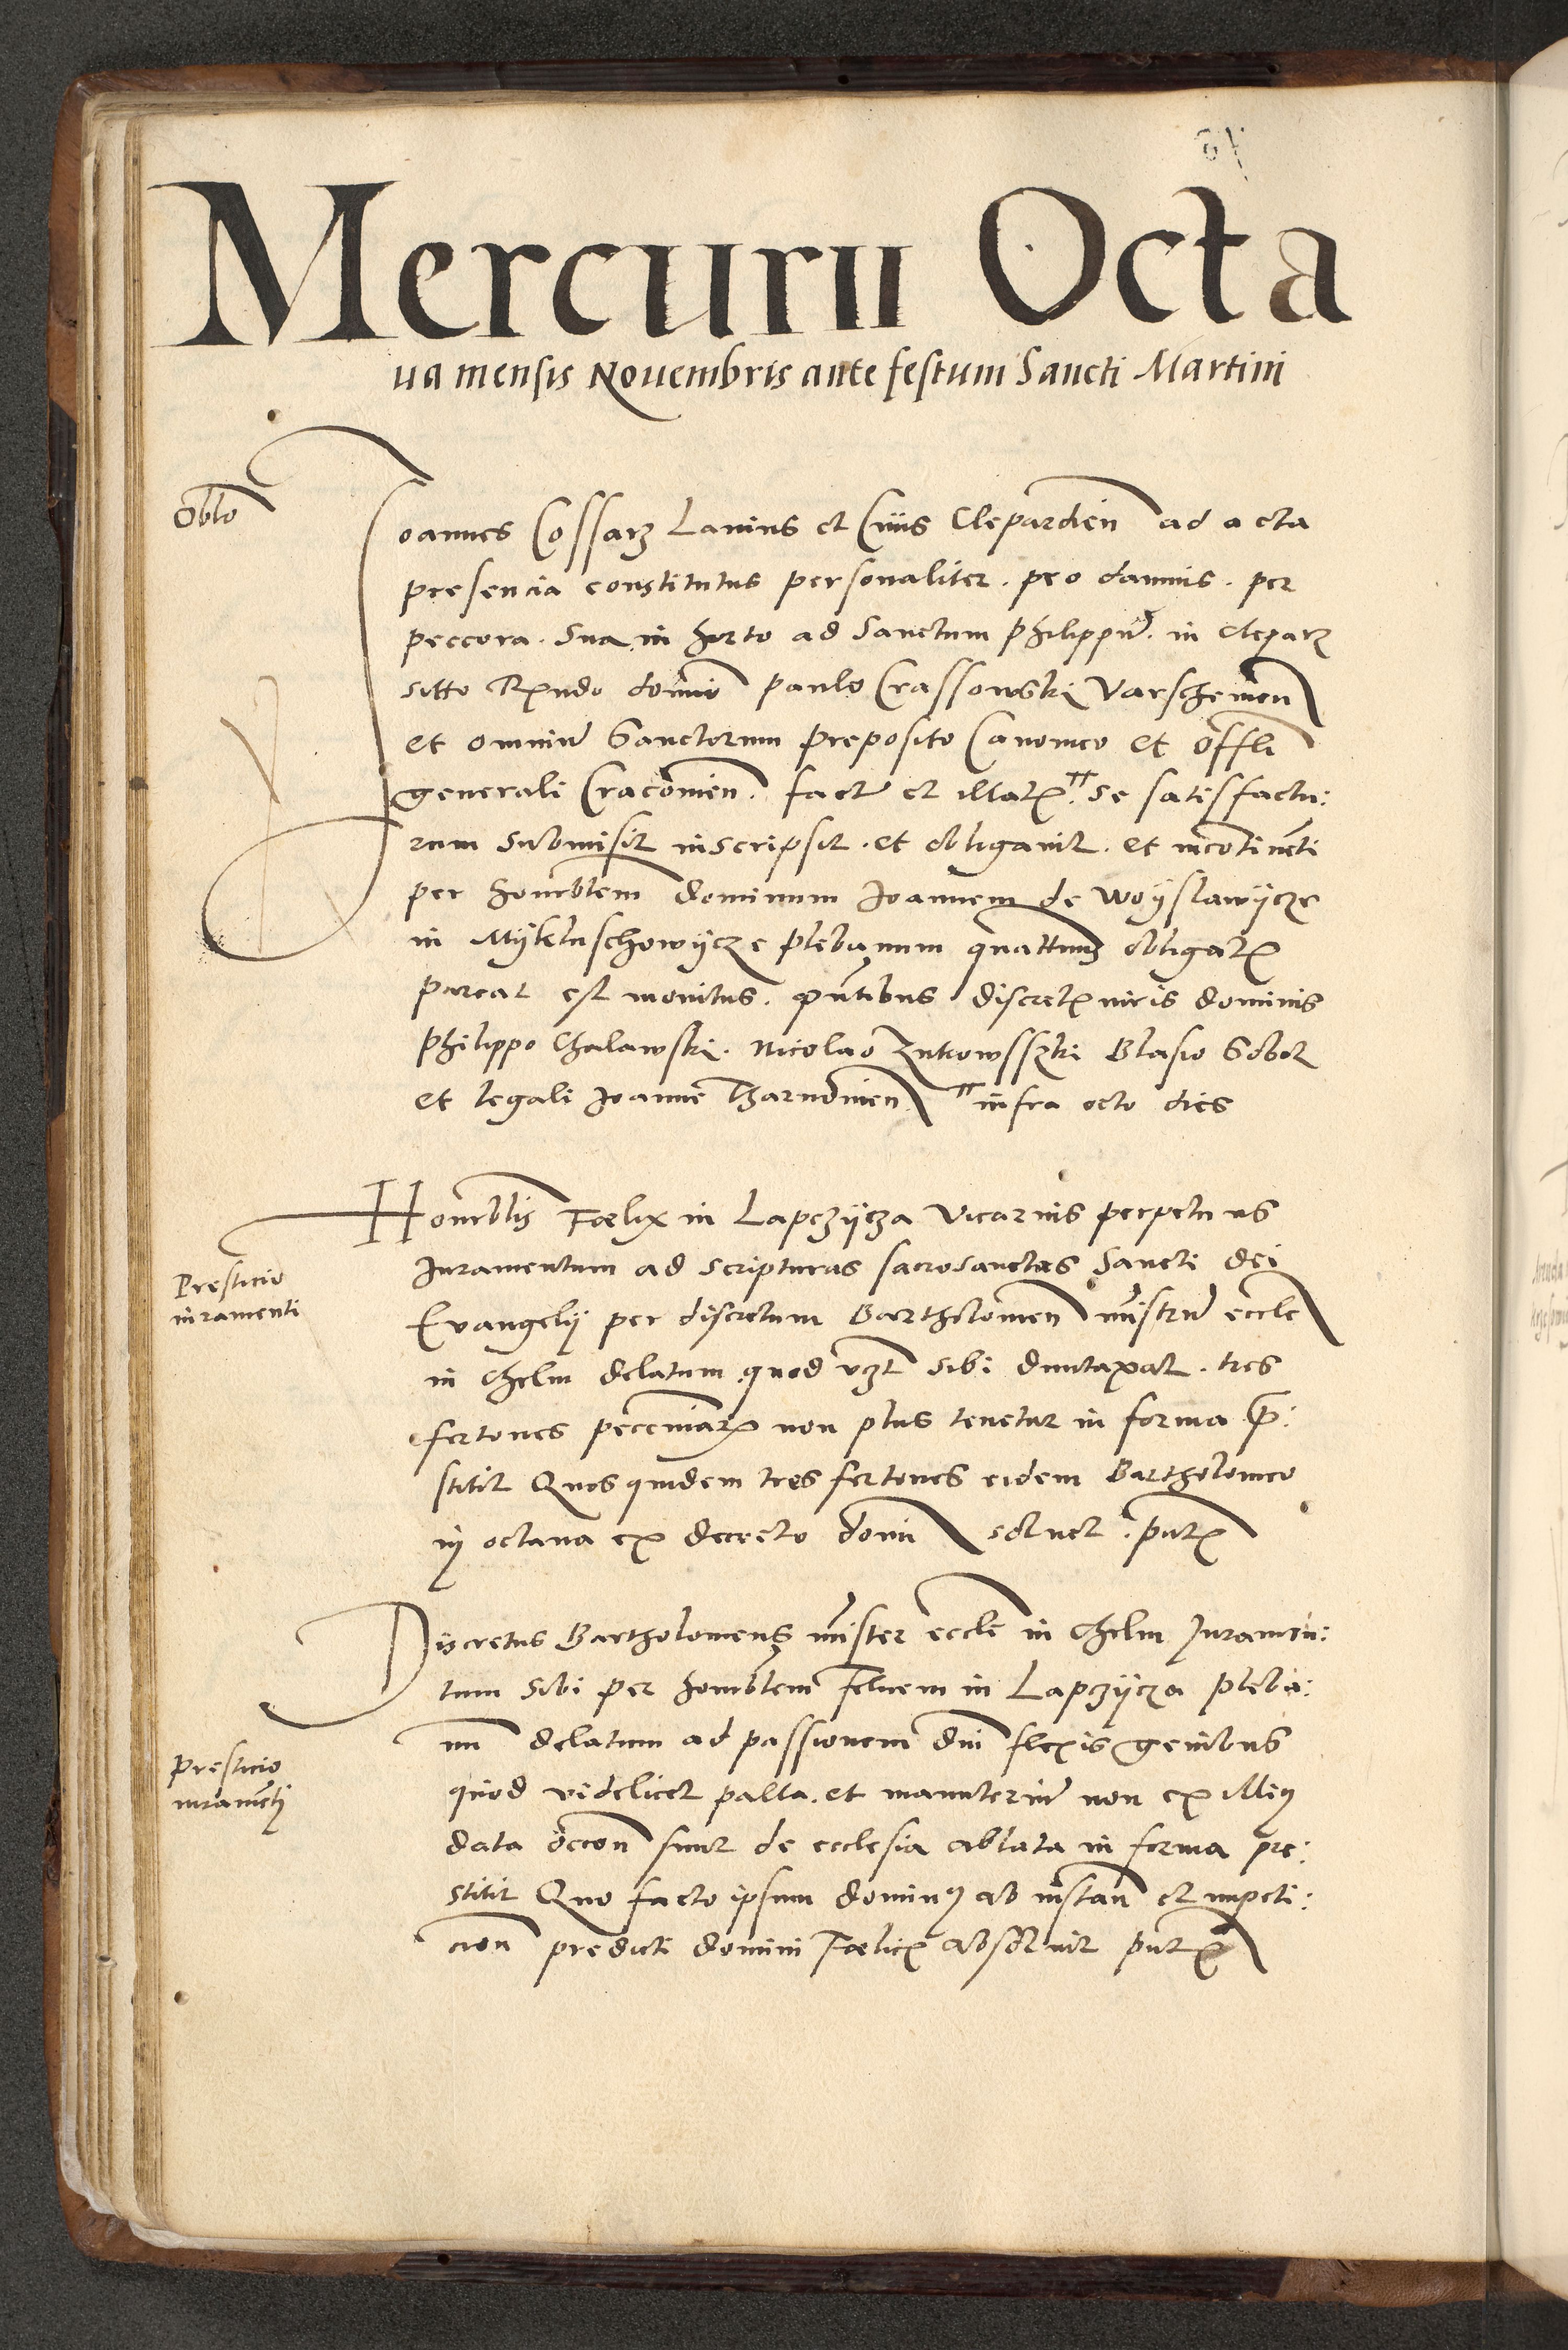 Mercurii Octa
va mensis Novembris ante festum Sancti Martini
Oblo
Joannes Cossarz Lanius et Civis Clepardien ad acta
presencia constitutus personaliter. pro damnis. per
peccora. sua in horto ad Sanctum Philippu. in Cleparz
sitto Rndo domino Paulo Crassowski Varschevien
et omniu Sanctorum preposito Canonico et offli
generali Cracovien. factu et illatis. ╥ se satisfactu:
rum submisit inscripsit. et obligavit. et incontineti
per honorblem dominum Joannem de Woyslawycze
in Mykluschowycze plebanum quattinus obligatis
pareat est monitus. pntibus discretis viris dominis
Philippo Chalawski. Nicolao Zukowsszki Blasio Gobol
et legali Joanne Tharnovien ╥ infra octo dies
Honorblis Foelix in Lapczycza Vicarius perpetuus
Presticio
iuramenti
Juramentum ad scripturas sacrosanctas Sancti dei
Evangelij per discretum Bartholomeu mistru eccle
in Chelm delatum quod vzt sibi duntaxat. tres
fertones pecceniar non plus tenetur in forma p:
stitit Quos quidem tres fertones eidem Bartholomeo
in octava ex decreto domi solvet. pntx
Discretus Bartholomeus mister eccle in Chelm Juramen:
tum sibi per honorblem felicem in Lapczycza pleba:
nu delatum ad passionem dni flexis genibus
Presticio
iurameti
quod videlicet palla. et manuteriu non ex illius
data occon sunt de ecclesia ablata in forma pre:
stitit Quo facto ipsum dominus ab instan et impeti:
cion predicti domini Foelicis absolvit pntx